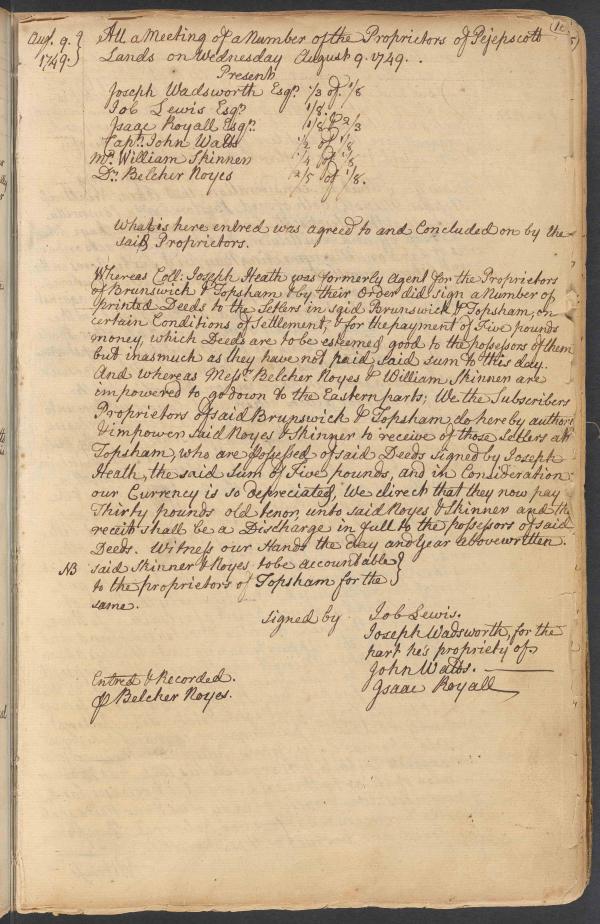 Aug. 9. 1749.
Att a Meeting of a Number of the Proprietors of Pejepscott
Lands on Wednesday August 9. 1749.
Present
Joseph Wadsworth Esqr. 1/3 of 1/8
Job Lewis Esqr. 1/8.
Isaac Royall Esqr. 1/8 & 2/3
Capt. John Watts 1/2 of 1/8
Mr. William Skinner 1/4 of 1/8
Dr. Belcher Noyes 2/5 of 1/8.
What is here entred was agreed to and Concluded on by the
said Proprietors.
Whereas Coll: Joseph Heath was formerly Agent for the Proprietors
of Brunswick & Topsham & by their Order did sign a Number of
printed Deeds to the Setlers in said Brunswick & Topsham, on
certain Conditions of Settlement, & for the payment of Five pounds
money, which Deeds are to be esteemed good to the possessors of them
but inasmuch as they have not paid said sum to this day.
And whereas Messrs. Belcher Noyes & William Skinner are
impowered to go down to the Eastern parts; We the Subscribers
Proprietors of said Brunswick & Topsham, do hereby authori
& impower said Noyes & Skinner to receive of those Setlers att
Topsham, who are possessed of said Deeds signed by Joseph
Heath, the said sum of Five pounds, and in Consideration
our Currency is so depreciated, We direct that they now pay
Thirty pounds old tenor, unto said Noyes & Skinner and th
receit shall be a Discharge in full to the possessors of said
Deeds. Witness our Hands the day and Year abovewritten.
NB said Skinner & Noyes to be accountable
to the proprietors of Topsham for the
same.
signed by Job Lewis.
Joseph Wadsworth, for the
part he's propriety of
John Watts.
Isaac Royall
Entred & Recorded.
p Belcher Noyes.